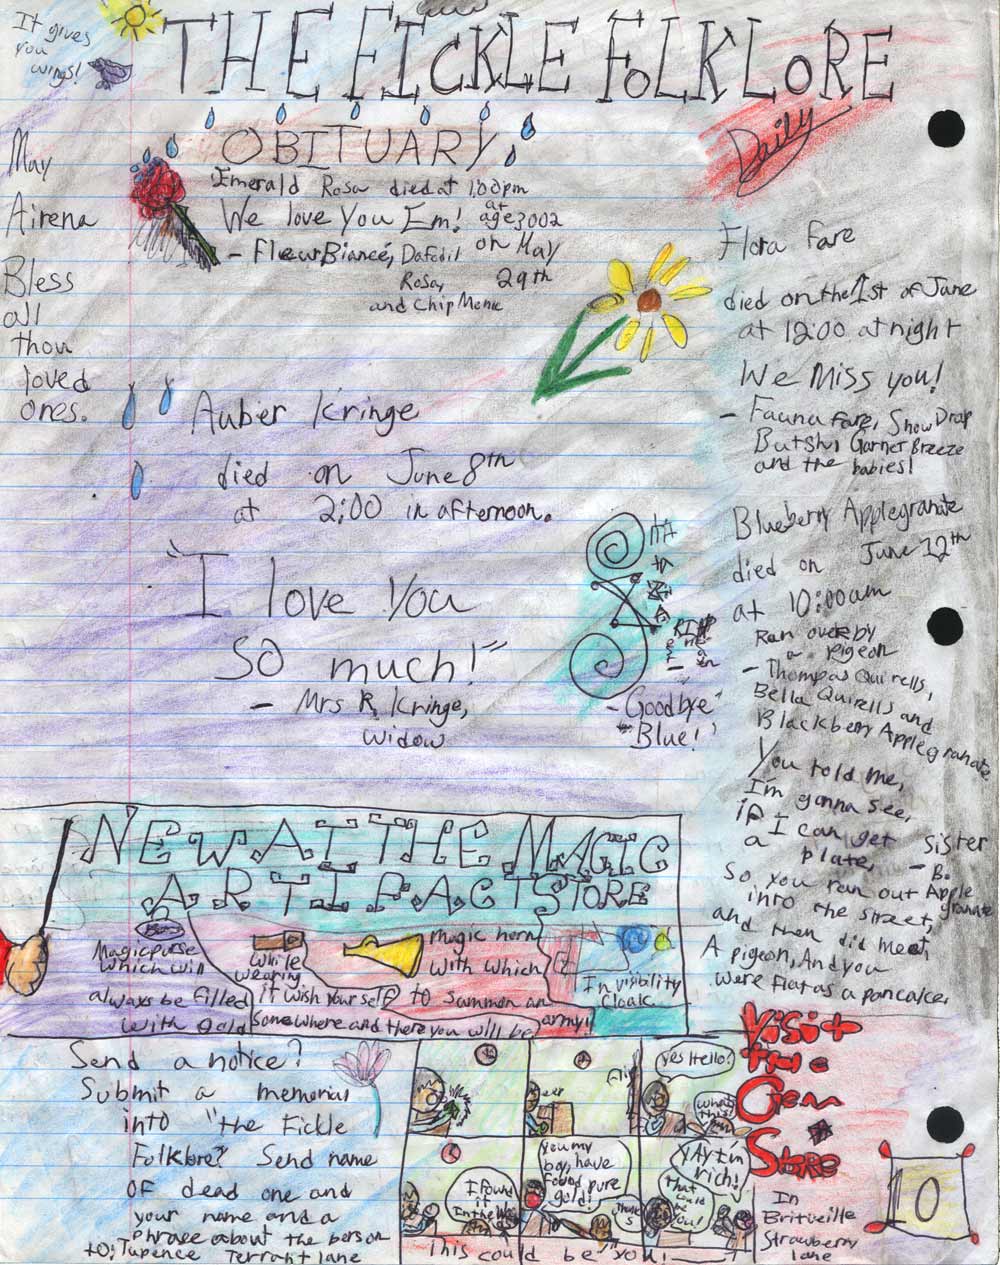 It gives
you
wings!
THE FICKLE FOLKLORE
Daily
OBITUARY
May
Airena
Bless
all
thou
loved
ones.
Emerald Rosa died at 1:00pm
We love you Em! at
age 3002
on May
29th
- Fleur Biancé, Dafodil
Rosa,
and Chip Monk
Auber Kringe
died on June 8th
at 2:00 in afternoon.
"I love you
so much!"
- Mrs R. Kringe,
widow
Flora Fare
died on the 1st of June
at 12:00 at night
We Miss you!
- Fauna Fare, Snow Drap
Butshi Garnet Breeze
and the babies!
Blueberry Applegranate
died on June 12th
at 10:00am
Ran over by
a pigeon
- Thompas Quirells,
Bella Quirells and
Blackberry Applegranate
- Goodbye
Blue!"
You told me,
I'm gonna see,
if I can get
a plate,
So you ran out
into the street,
and then did meet
A pigeon, And you
were flat as a pancake,
sister
- B.
Apple
granate
NEW AT THE MAGIC
ARTIFACT STORE
Magic purse
which will
always be filled
with gold
While
wearing
it wish yourself
somewhere and there you will be
magic horn
with which
to summon an
army!!
Invisibility
Cloak
Send a notice?
Submit a memorial
into "the Fickle
Folklore? Send name
of dead one and
your name and a
phrase about the person
to: Tupence Terrant lane
Yes Hello?
what's
this?
I found
it
In the
you my
boy, have
found pure
gold!
Thanks
YAY I'm
rich!
That could
be
you!
This could be you!
Visit
the
Gem
Store
In
Britueille
Strawberry
lane
10